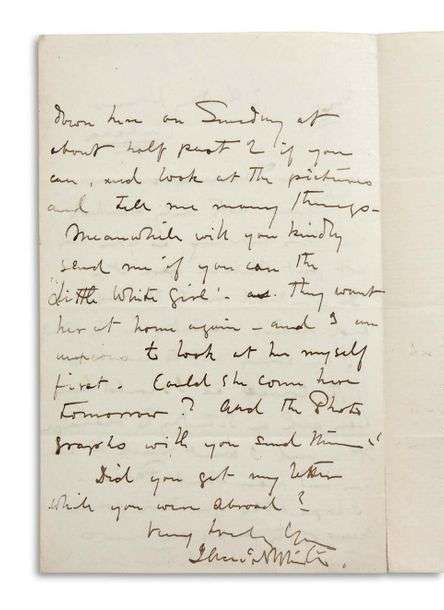 down here on Sunday at
about half past 2 if you
can, and look at the pictures
and tell me many things -
Meanwhile will you kindly
send me if you can the
"Little White Girl" - as they want
her at home again - and I am
anxious to look at her myself
first. Could she come here
tomorrow? And the Photo
graphs will you send them
Did you get my letter
while you were abroad?
Very truly Yrs
J. McN. Whistler.